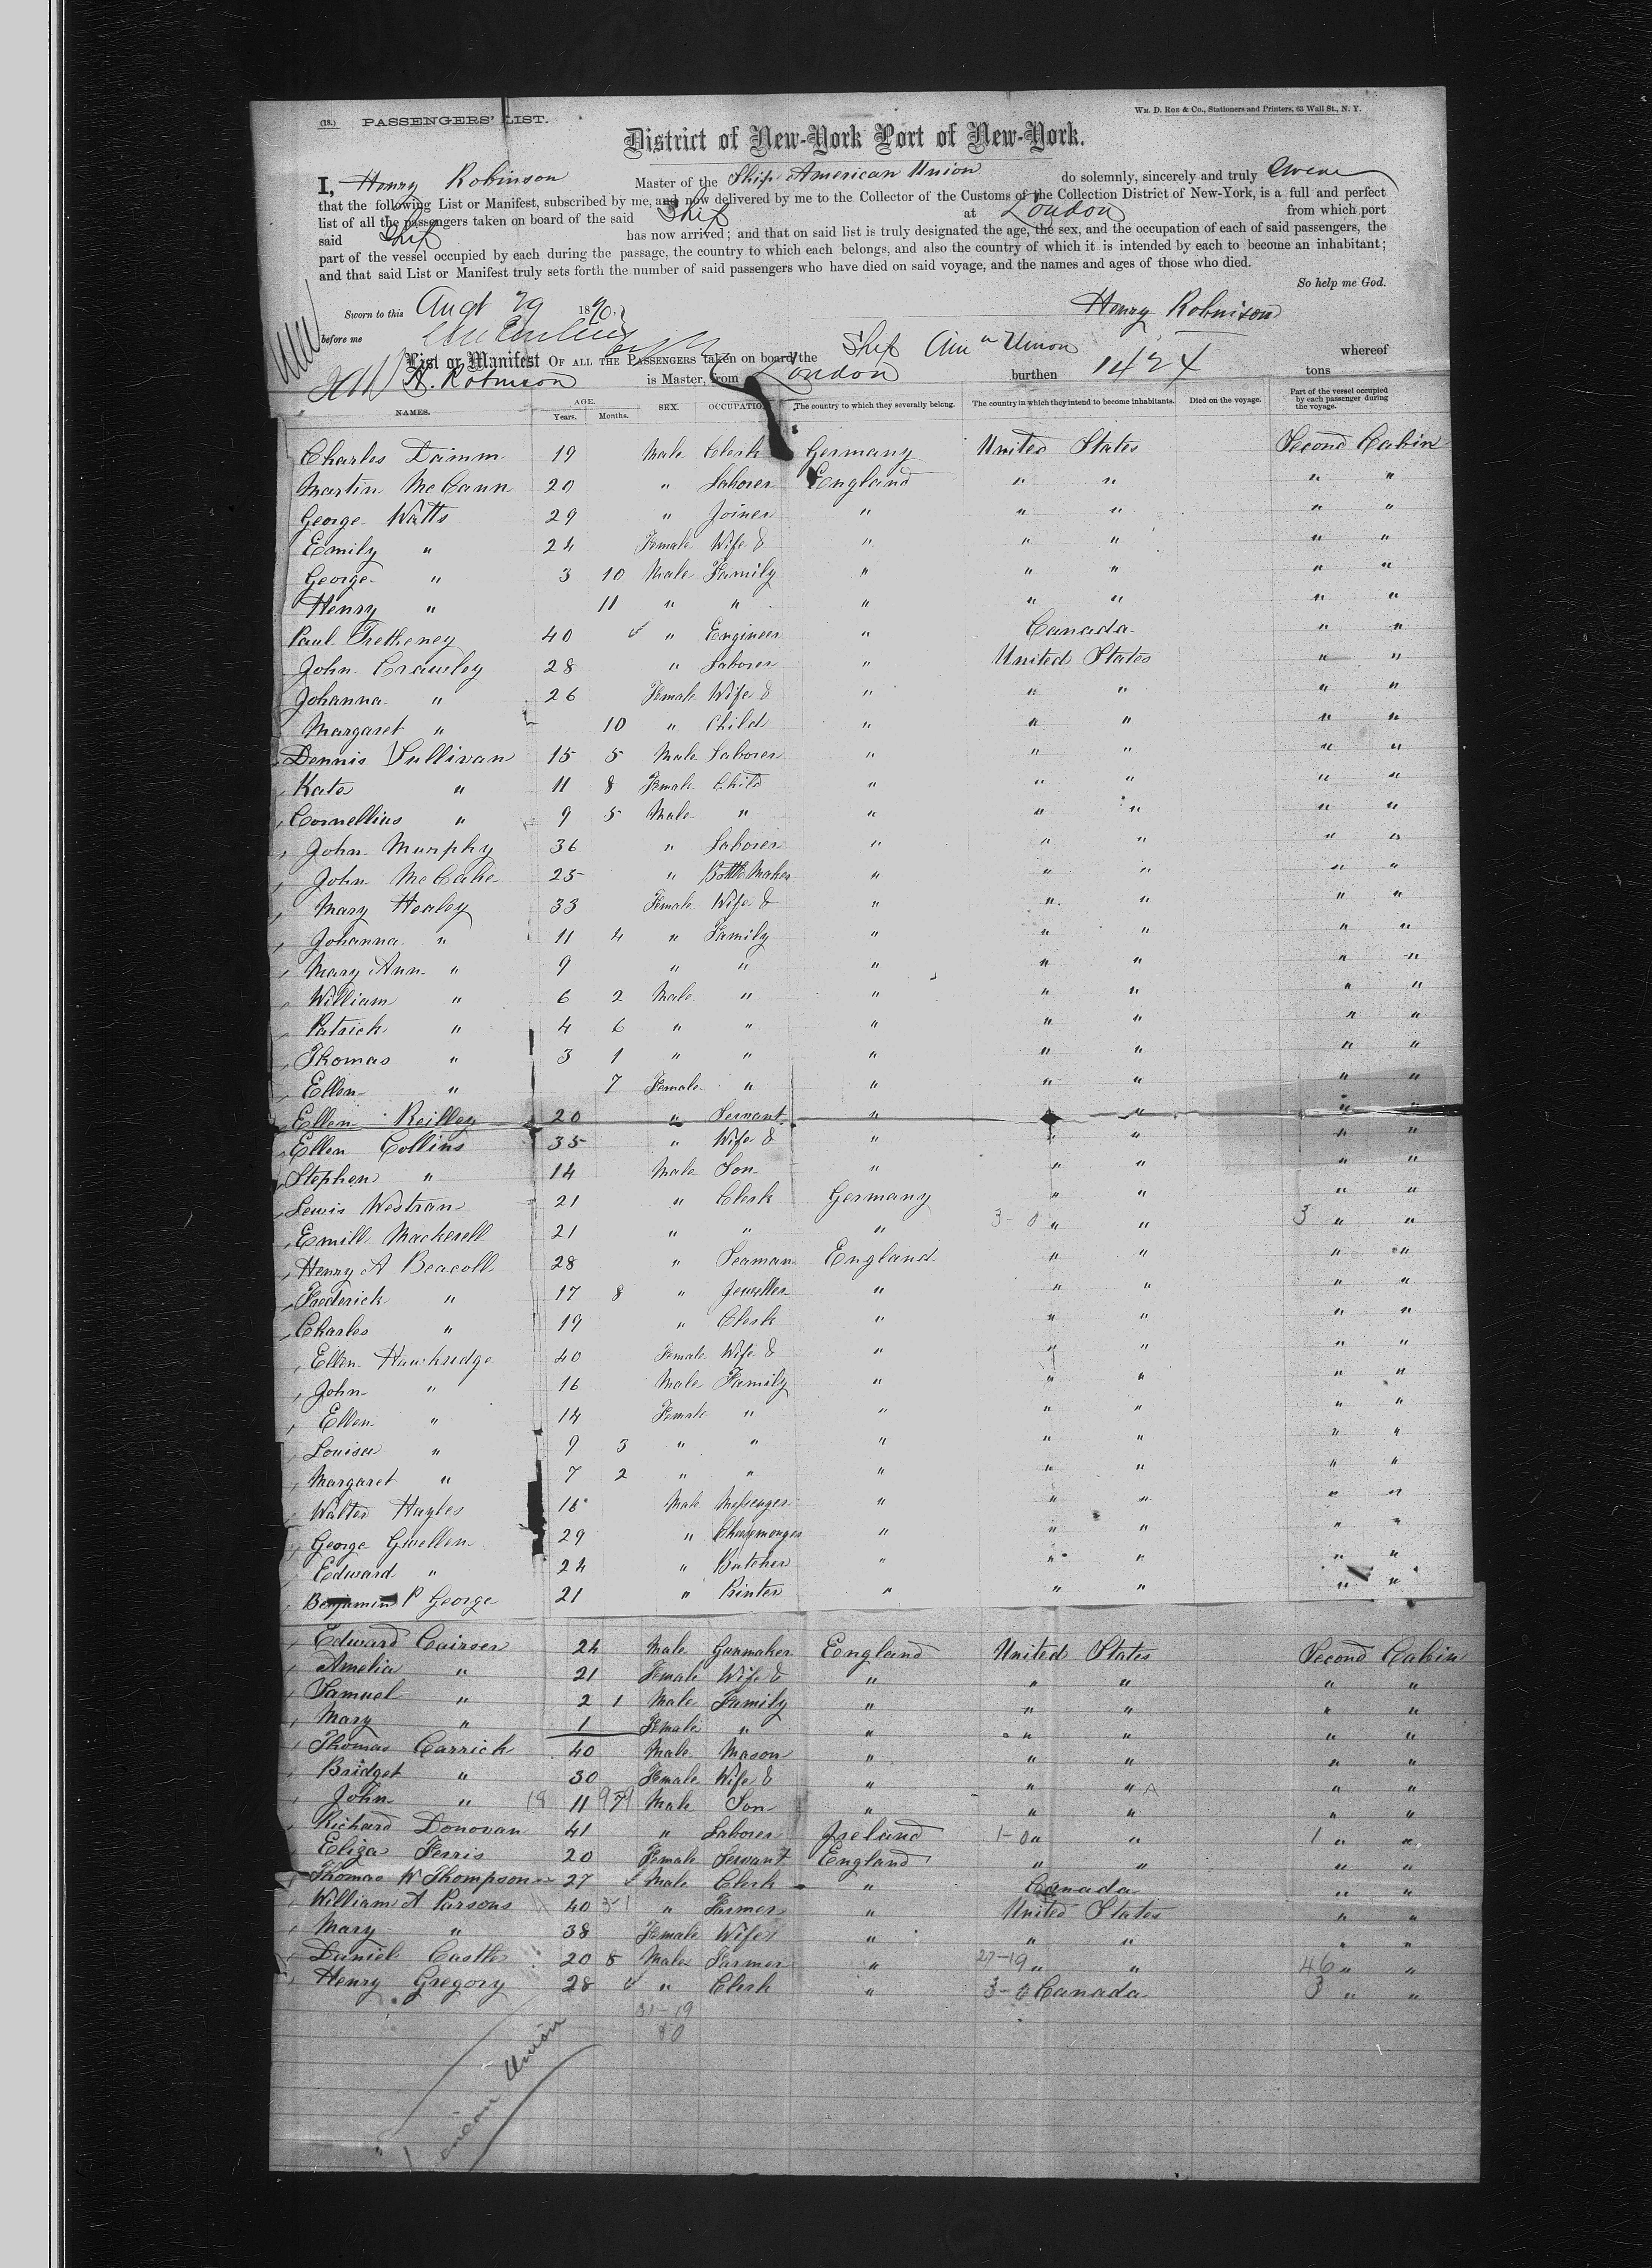 (18.) PASSENGERS' LIST.
WM. D. ROE & CO., Stationers and Printers, 63 Wall St., N. Y.
District of New-York Port of New-York.
I, Henry Robinson Master of the Ship American Union do solemnly, sincerely and truly swear
that the following List or Manifest, subscribed by me, and now delivered by me to the Collector of the Customs of the Collection District of New-York, is a full and perfect
list of all the passengers taken on board of the said Ship at London from which port
said Ship has now arrived; and that on said list is truly designated the age, the sex, and the occupation of each of said passengers, the
part of the vessel occupied by each during the passage, the country to which each belongs, and also the country of which it is intended by each to become an inhabitant;
and that said List or Manifest truly sets forth the number of said passengers who have died on said voyage, and the names and ages of those who died.
So help me God.
Sworn to this Augt 29 1870. Henry Robinson
before me
List or Manifest OF ALL THE PASSENGERS taken on board the Ship Amn Union whereof
H. Robinson is Master, from London burthen 1424 tons
NAMES. AGE. Years. Months. SEX. OCCUPATION. The country to which they severally belong. The country in which they intend to become inhabitants. Died on the voyage. Part of the vessel occupied by each passenger during the voyage.
Charles Damm 19 Male Clerk Germany United States Second Cabin
Martin McCann 20 " Laborer England " " " "
George Watts 29 " Joiner " " " " "
Emily " 24 Female Wife & " " " " "
George " 3 10 Male Family " " " " "
Henry " 11 " " " " " " "
Paul Tretheney 40 " Engineer " Canada " "
John Crawley 28 " Laborer " United States " "
Johanna " 26 Female Wife & " " " " "
Margaret " 10 " Child " " " " "
Dennis Sullivan 15 5 Male Laborer " " " " "
Kate " 11 8 Female Child " " " " "
Cornellius " 9 5 Male " " " " " "
John Murphy 36 " Laborer " " " " "
John McCabe 25 " Bottle Maker " " " " "
Mary Healey 33 Female Wife & " " " " "
Johanna " 11 4 " Family " " " " "
Mary Ann " 9 " " " " " " "
William " 6 2 Male " " " " " "
Patrick " 4 6 " " " " " " "
Thomas " 3 1 " " " " " " "
Ellen " 7 Female " " " " " "
Ellen Reilley 20 " Servant " " " " "
Ellen Collins 35 " Wife & " " " " "
Stephen " 14 Male Son " " " " "
Lewis Westran 21 " Clerk Germany " " " "
Emill Mackerell 21 " " " 3-0 " " 3 " "
Henry A Beacoll 28 " Seaman England " " " "
Frederick " 17 8 " Jeweller " " " " "
Charles " 19 " Clerk " " " " "
Ellen Hawkridge 40 Female Wife & " " " " "
John " 16 Male Family " " " " "
Ellen " 14 Female " " " " " "
Louisa " 9 3 " " " " " " "
Margaret " 7 2 " " " " " " "
Walter Hayles 16 Male Messenger " " " " "
George Gwellen 29 " Cheesemonger " " " " "
Edward " 24 " Butcher " " " " "
Benjamin P George 21 " Printer " " " " "
Edward Cairser 24 Male Gunmaker England United States Second Cabin
Amelia " 21 Female Wife & " " " " "
Samuel " 2 1 Male Family " " " " "
Mary " 1 Female " " " " " "
Thomas Carrick 40 Male Mason " " " " "
Bridget " 30 Female Wife & " " " " "
John " 18 11 7 Male Son " " " " "
Richard Donovan 41 " Laborer Ireland 1-0 " " 1 " "
Eliza Ferris 20 Female Servant England " " " "
Thomas W Thompson 27 Male Clerk " Canada " "
William A Parsons 40 " Farmer " United States " "
Mary " 38 Female Wife " " " " "
Daniel Castle 20 8 Male Farmer " 27-19 " " 46 " "
Henry Gregory 28 " Clerk " 3-0 Canada 3 " "
31-19
Union